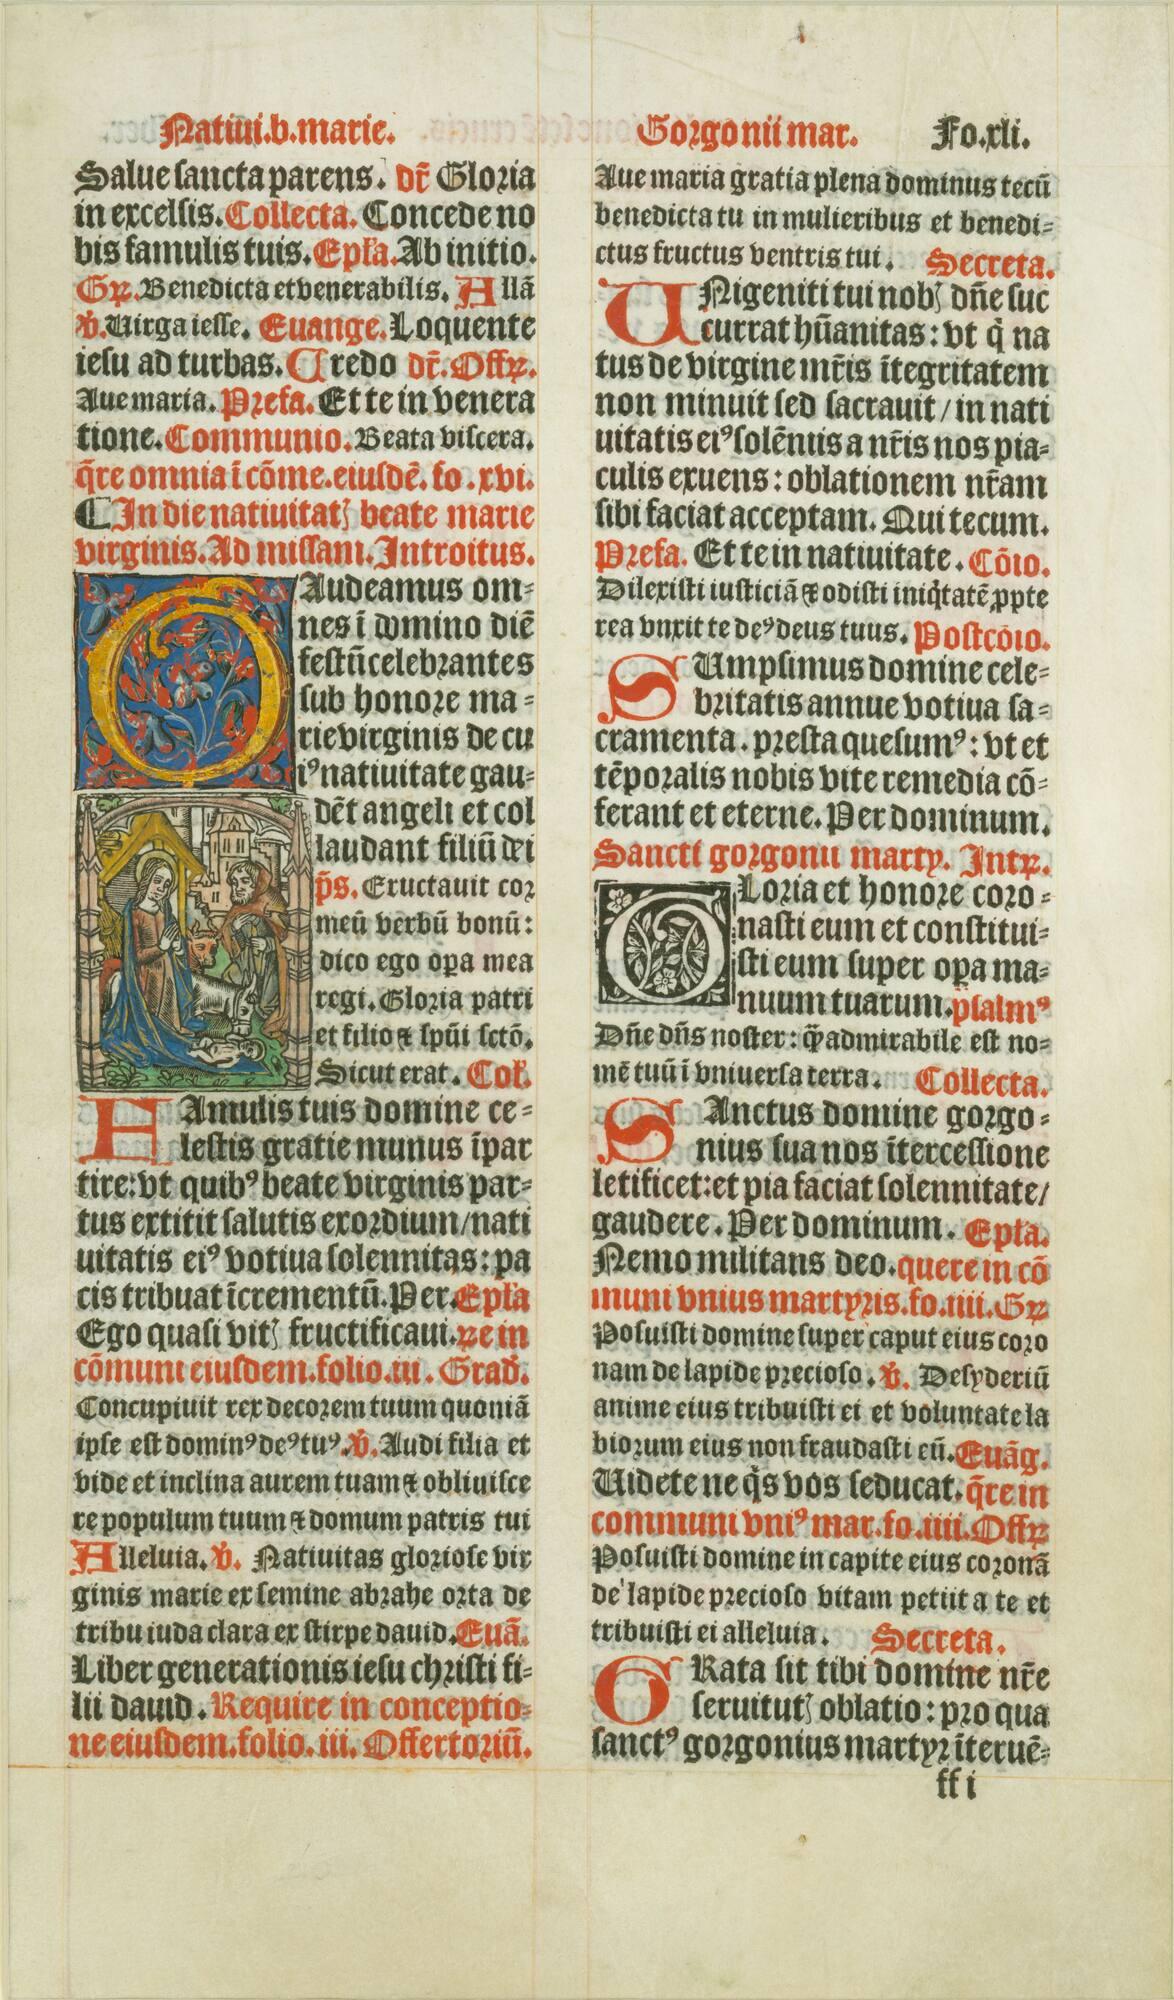 Natiui.b.marie.
Gorgonii mar. Fo.xli.
Salue sancta parens. dr̄ Gloria
in excelsis. Collecta. Concede no
bis famulis tuis. Epła. Ab initio.
Gꝝ. Benedicta et venerabilis. Allā
℣. Uirga iesse. Euange. Loquente
iesu ad turbas. Credo dr̄. Offꝝ.
Aue maria. Prefa. Et te in venera
tione. Communio. Beata viscera.
q̄re omnia ī cōme. eiusdē. fo. xvi.
¶ In die natiuitatꝭ beate marie
virginis. Ad missam. Introitus.
GAudeamus om⸗
nes ī domino diē
festū celebrantes
sub honore ma⸗
rie virginis de cu
iꝰ natiuitate gau⸗
dēt angeli et col
laudant filiū dei
p̄s. Eructauit cor
meū verbū bonū:
dico ego opa mea
regi. Gloria patri
et filio ⁊ spūi sctō.
Sicut erat. Coł.
FAmulis tuis domine ce⸗
lestis gratie munus īpar
tire: vt quibꝰ beate virginis par⸗
tus extitit salutis exordium/nati
uitatis eiꝰ votiua solennitas: pa
cis tribuat īcrementū. Per. Epła
Ego quasi vitꝭ fructificaui. ꝛe in
cōmuni eiusdem. folio. iii. Grad̄.
Concupiuit rex decorem tuum quoniā
ipse est dominꝰ deꝰ tuꝰ. ℣. Audi filia et
vide et inclina aurem tuam ⁊ obliuisce
re populum tuum ⁊ domum patris tui
Alleluia. ℣. Natiuitas gloriose vir
ginis marie ex semine abrahe orta de
tribu iuda clara ex stirpe dauid. Euā.
Liber generationis iesu christi fi⸗
lii dauid. Require in conceptio⸗
ne eiusdem. folio. iii. Offertoriū.
Aue maria gratia plena dominus tecū
benedicta tu in mulieribus et benedi⸗
ctus fructus ventris tui. Secreta.
UNigeniti tui nobꝭ dn̄e suc
currat hūanitas: vt q̇ na
tus de virgine mr̄is ītegritatem
non minuit sed sacrauit / in nati
uitatis eiꝰ solēniis a nr̄is nos pia⸗
culis exuens: oblationem nr̄am
sibi faciat acceptam. Qui tecum.
Prefa. Et te in natiuitate. Cōio.
Dilexisti iusticiā ⁊ odisti iniq̇tatē ꝓpte
rea vnxit te deꝰ deus tuus. Postcōio.
SUmpsimus domine cele⸗
britatis annue votiua sa⸗
cramenta. presta quesumꝰ: vt et
tēporalis nobis vite remedia cō⸗
ferant et eterne. Per dominum.
Sancti gorgonii marty. Intꝝ.
GLoria et honore coro⸗
nasti eum et constitui⸗
sti eum super opa ma⸗
nuum tuarum. psalmꝰ
Dn̄e dn̄s noster: q̄ admirabile est no⸗
mē tuū ī vniuersa terra. Collecta.
SAnctus domine gorgo⸗
nius sua nos ītercessione
letificet: et pia faciat solennitate/
gaudere. Per dominum. Epła.
Nemo militans deo. quere in cō
muni vnius martyris. fo. iiii. Gꝝ
Posuisti domine super caput eius coro
nam de lapide precioso. ℣. Desyderiū
anime eius tribuisti ei et voluntate la
biorum eius non fraudasti eū. Euāg.
Uidete ne q̇s vos seducat. q̄re in
communi vniꝰ mar. fo. iiii. Offꝝ
Posuisti domine in capite eius coronā
de lapide precioso vitam petiit a te et
tribuisti ei alleluia. Secreta.
GRata sit tibi domine nr̄e
seruitutꝭ oblatio: pro qua
sanctꝰ gorgonius martyr īteruē⸗
ff i